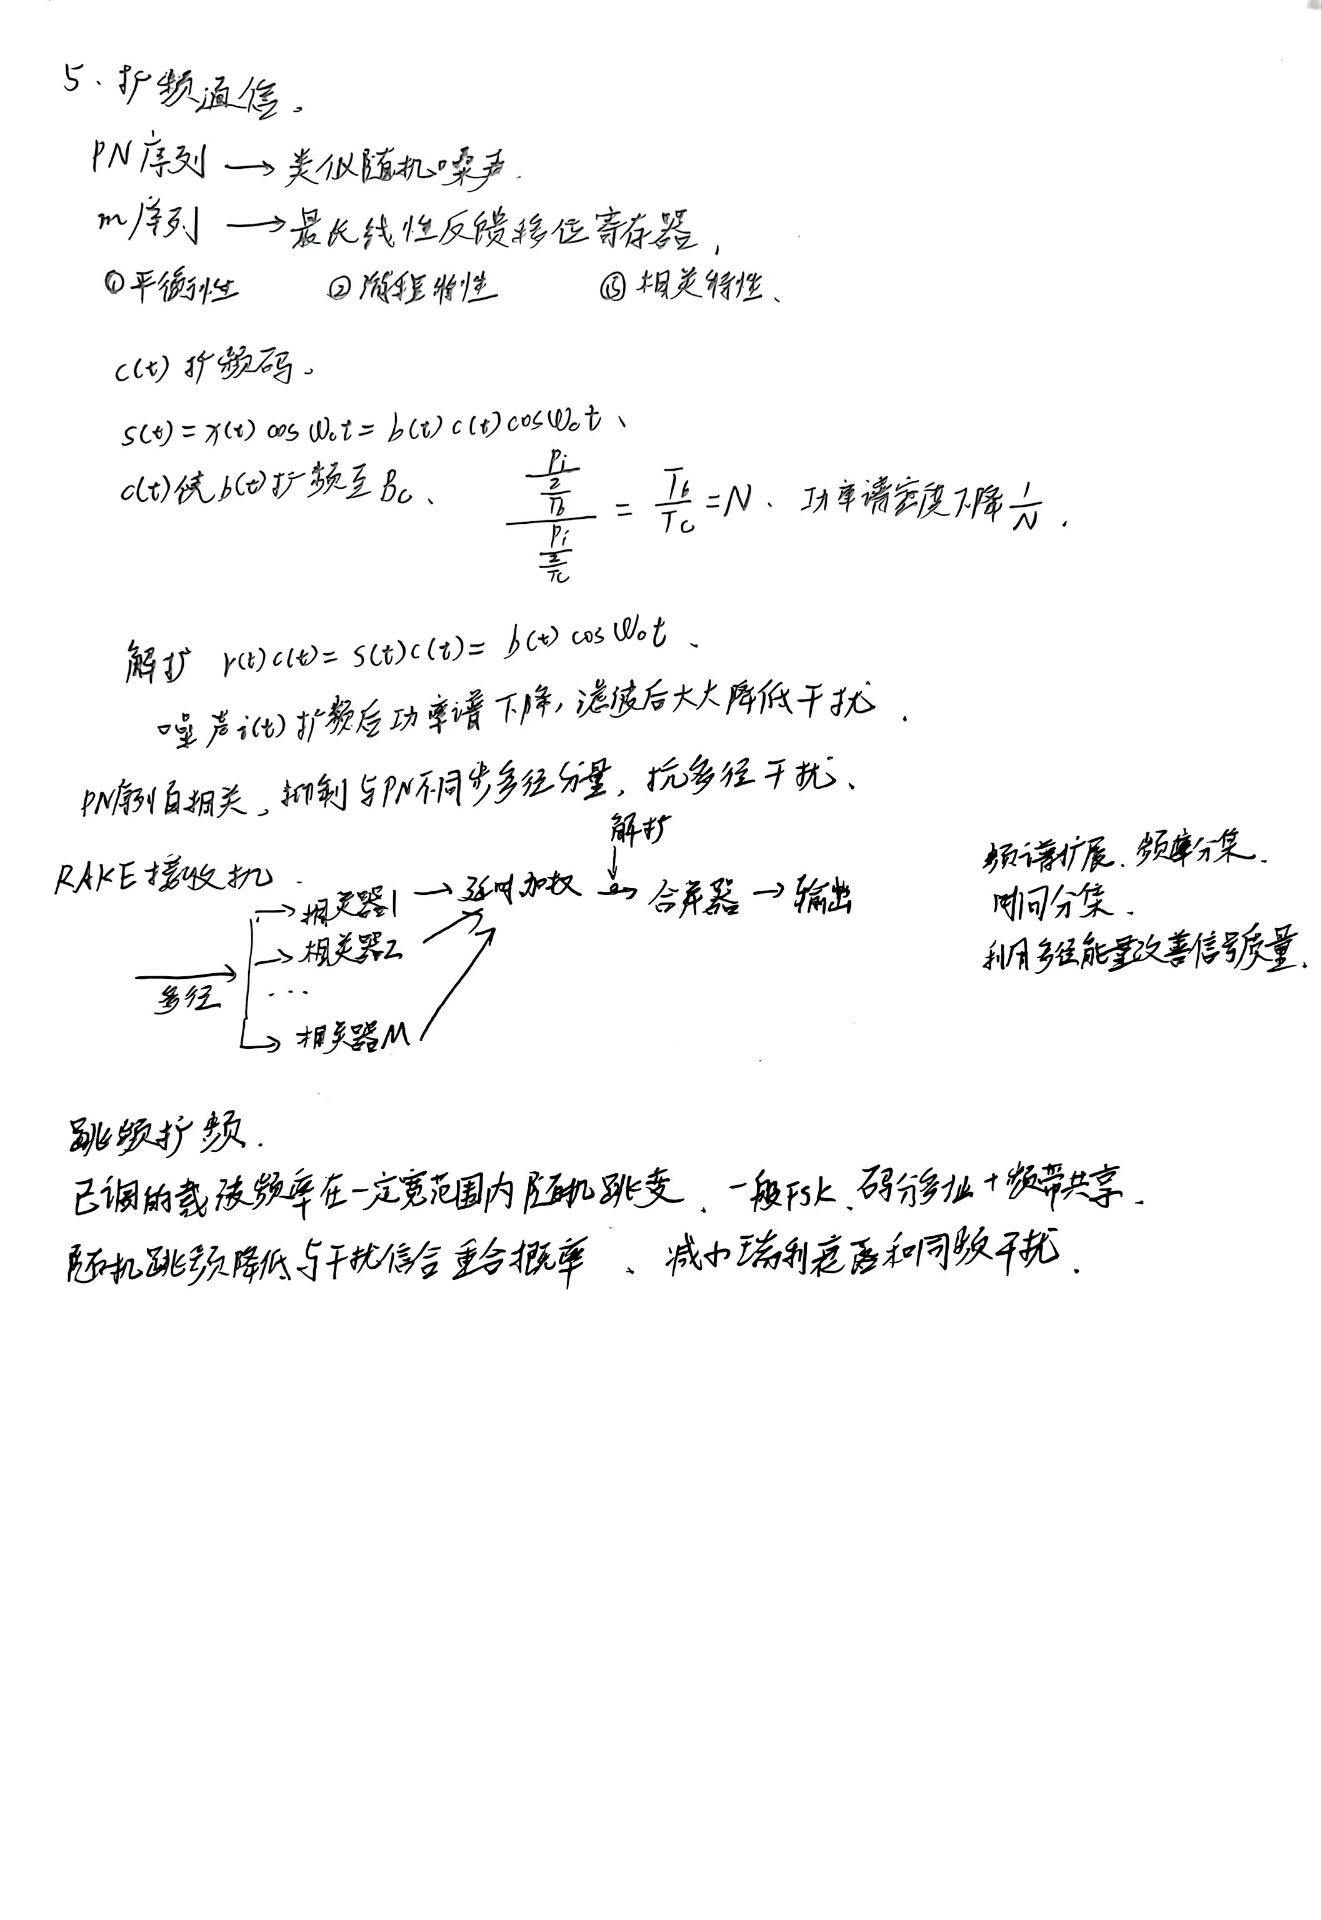 5、扩频通信、
PN序列 → 类似随机噪声.
m序列 → 最长线性反馈移位寄存器,
①平衡特性 ②游程特性 ③相关特性、
c(t) 扩频码、
s(t)=x(t) cos ω₀t= b(t) c(t) cosω₀t、
c(t)使b(t)扩频至Bc、 (Pi/(2/Tb))/(Pi/(2/Tc)) = Tb/Tc =N、功率谱密度下降1/N.
解扩 r(t)c(t)= s(t)c(t)= b(t) cos ω₀t 、
噪声i(t)扩频后功率谱下降,滤波后大大降低干扰.
PN序列自相关、抑制与PN不同步多径分量,抗多径干扰、
RAKE接收机.
多径
→相关器1 → 延时加权 → 合并器 → 输出
解扩
→相关器2
...
→相关器M
频谱扩展、频率分集.
时间分集.
利用多径能量改善信号质量.
跳频扩频.
已调的载波频率在一定宽范围内随机跳变、一般FSK、码分多址+频带共享.
随机跳频降低与干扰信合重合概率、减小瑞利衰落和同频干扰.